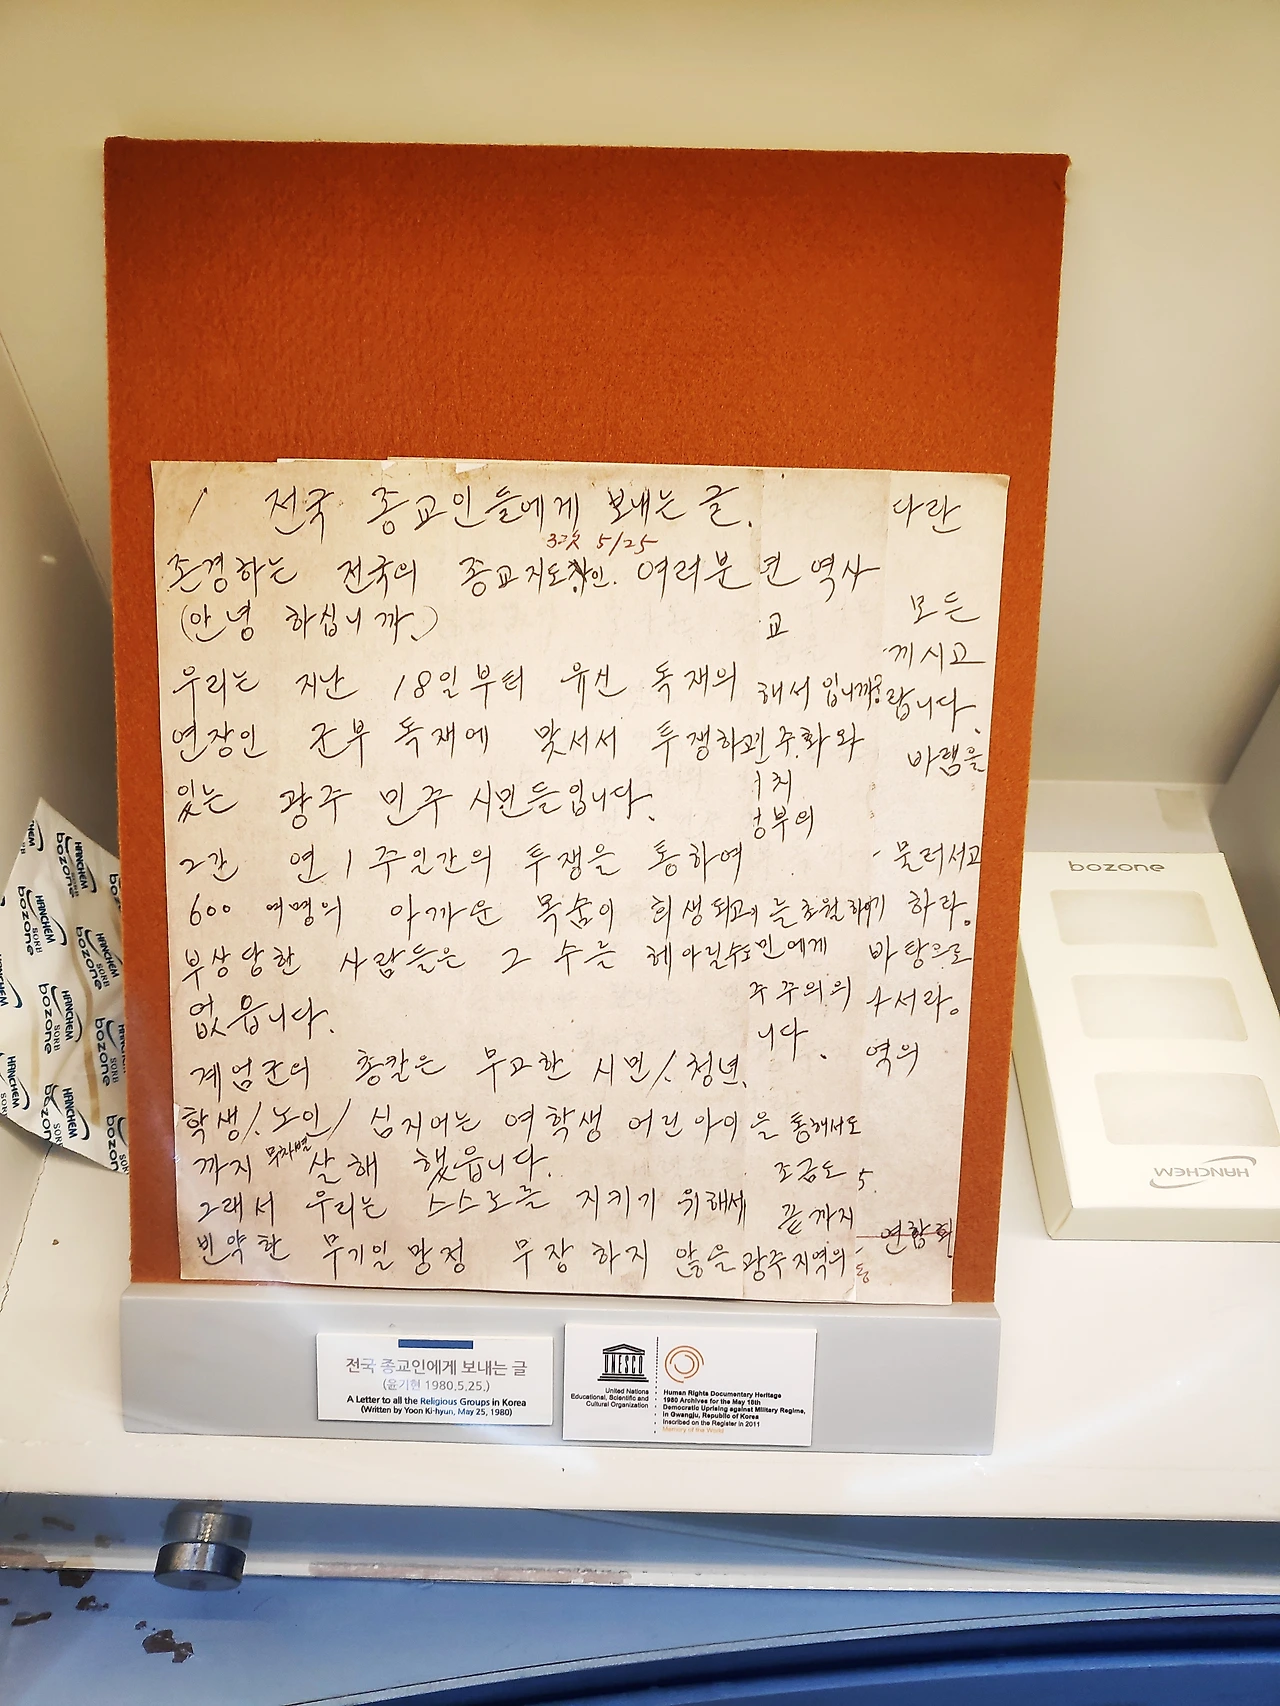 전국 종교인들에게 보내는 글.
5/25
존경하는 전국의 종교 지도 여러분
(안녕 하십니까.)
우리는 지난 18일부터 유신 독재의
연장인 군부 독재에 맞서서 투쟁하고
있는 광주 민주 시민들입니다.
2간 연 1주일간의 투쟁을 통하여
600 여명의 아까운 목숨이 희생되고
부상당한 사람들은 그 수를 헤아릴수도
없읍니다.
계엄군의 총칼은 무고한 시민/. 청년.
학생/. 노인/ 심지어는 여학생 어린아이
까지 무차별 살해 했읍니다.
그래서 우리는 스스로를 지키기 위해서
빈약한 무기일망정 무장하지 않을
년 역사
교
해서입니까?
민주화와
정부의
는 초월하여
민에게
주주의의
니다.
을 통해서도
조금도
끝까지
광주 지역의
다란
모든
께시고
랍니다.
바램을
물러서고
하라.
바탕으로
나서라.
역의
5.
연합회
전국 종교인에게 보내는 글
(윤기현 1980.5.25.)
A Letter to all the Religious Groups in Korea
(Written by Yoon Ki-hyun, May 25, 1980)
UNESCO
United Nations
Educational, Scientific and
Cultural Organization
Human Rights Documentary Heritage
1980 Archives for the May 18th
Democratic Uprising against Military Regime,
in Gwangju, Republic of Korea
Inscribed on the Register in 2011
Memory of the World
bozone
HANCHEM
HANCHEM
bozone
SORB